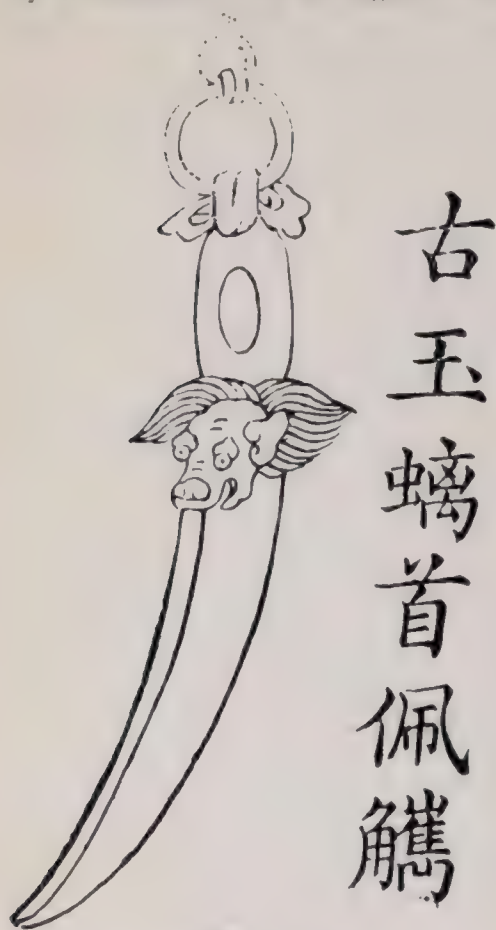 古玉螭首佩觿